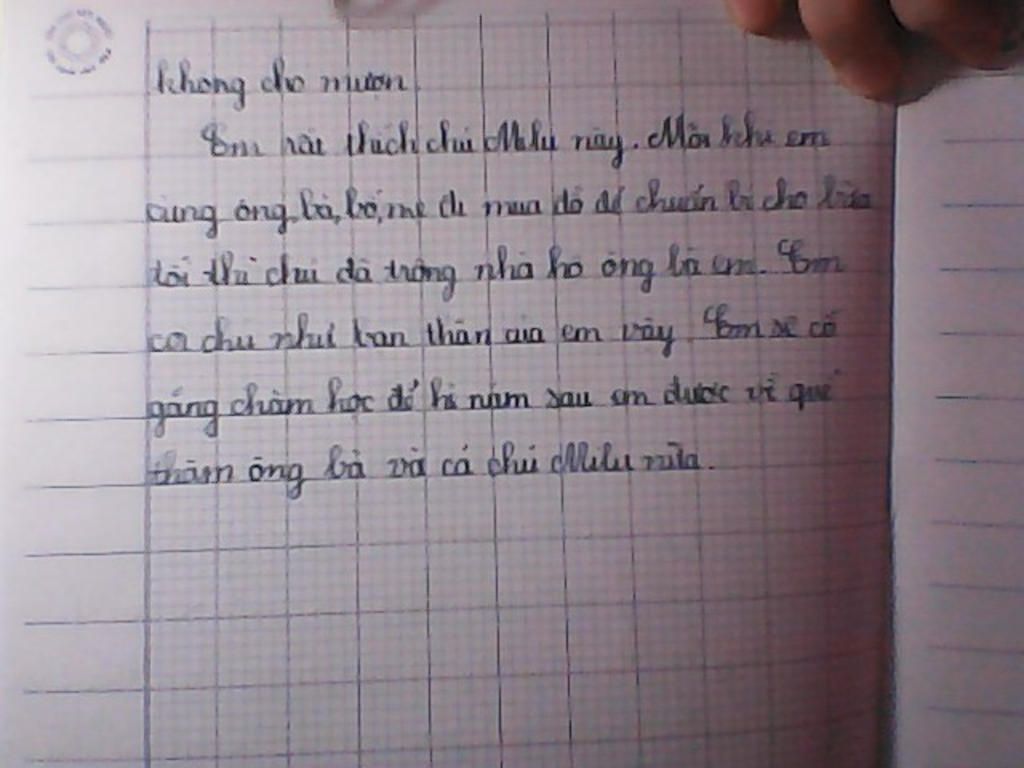 không cho mượn.
Em rất thích chú Milu này. Mỗi khi em
cùng ông, bà, bố, mẹ đi mua đồ để chuẩn bị cho bữa
tối thì chú đã trông nhà hộ ông bà em. Em
coi chú như bạn thân của em vậy. Em sẽ cố
gắng chăm học để hè năm sau em được về quê
thăm ông bà và cả chú Milu nữa.